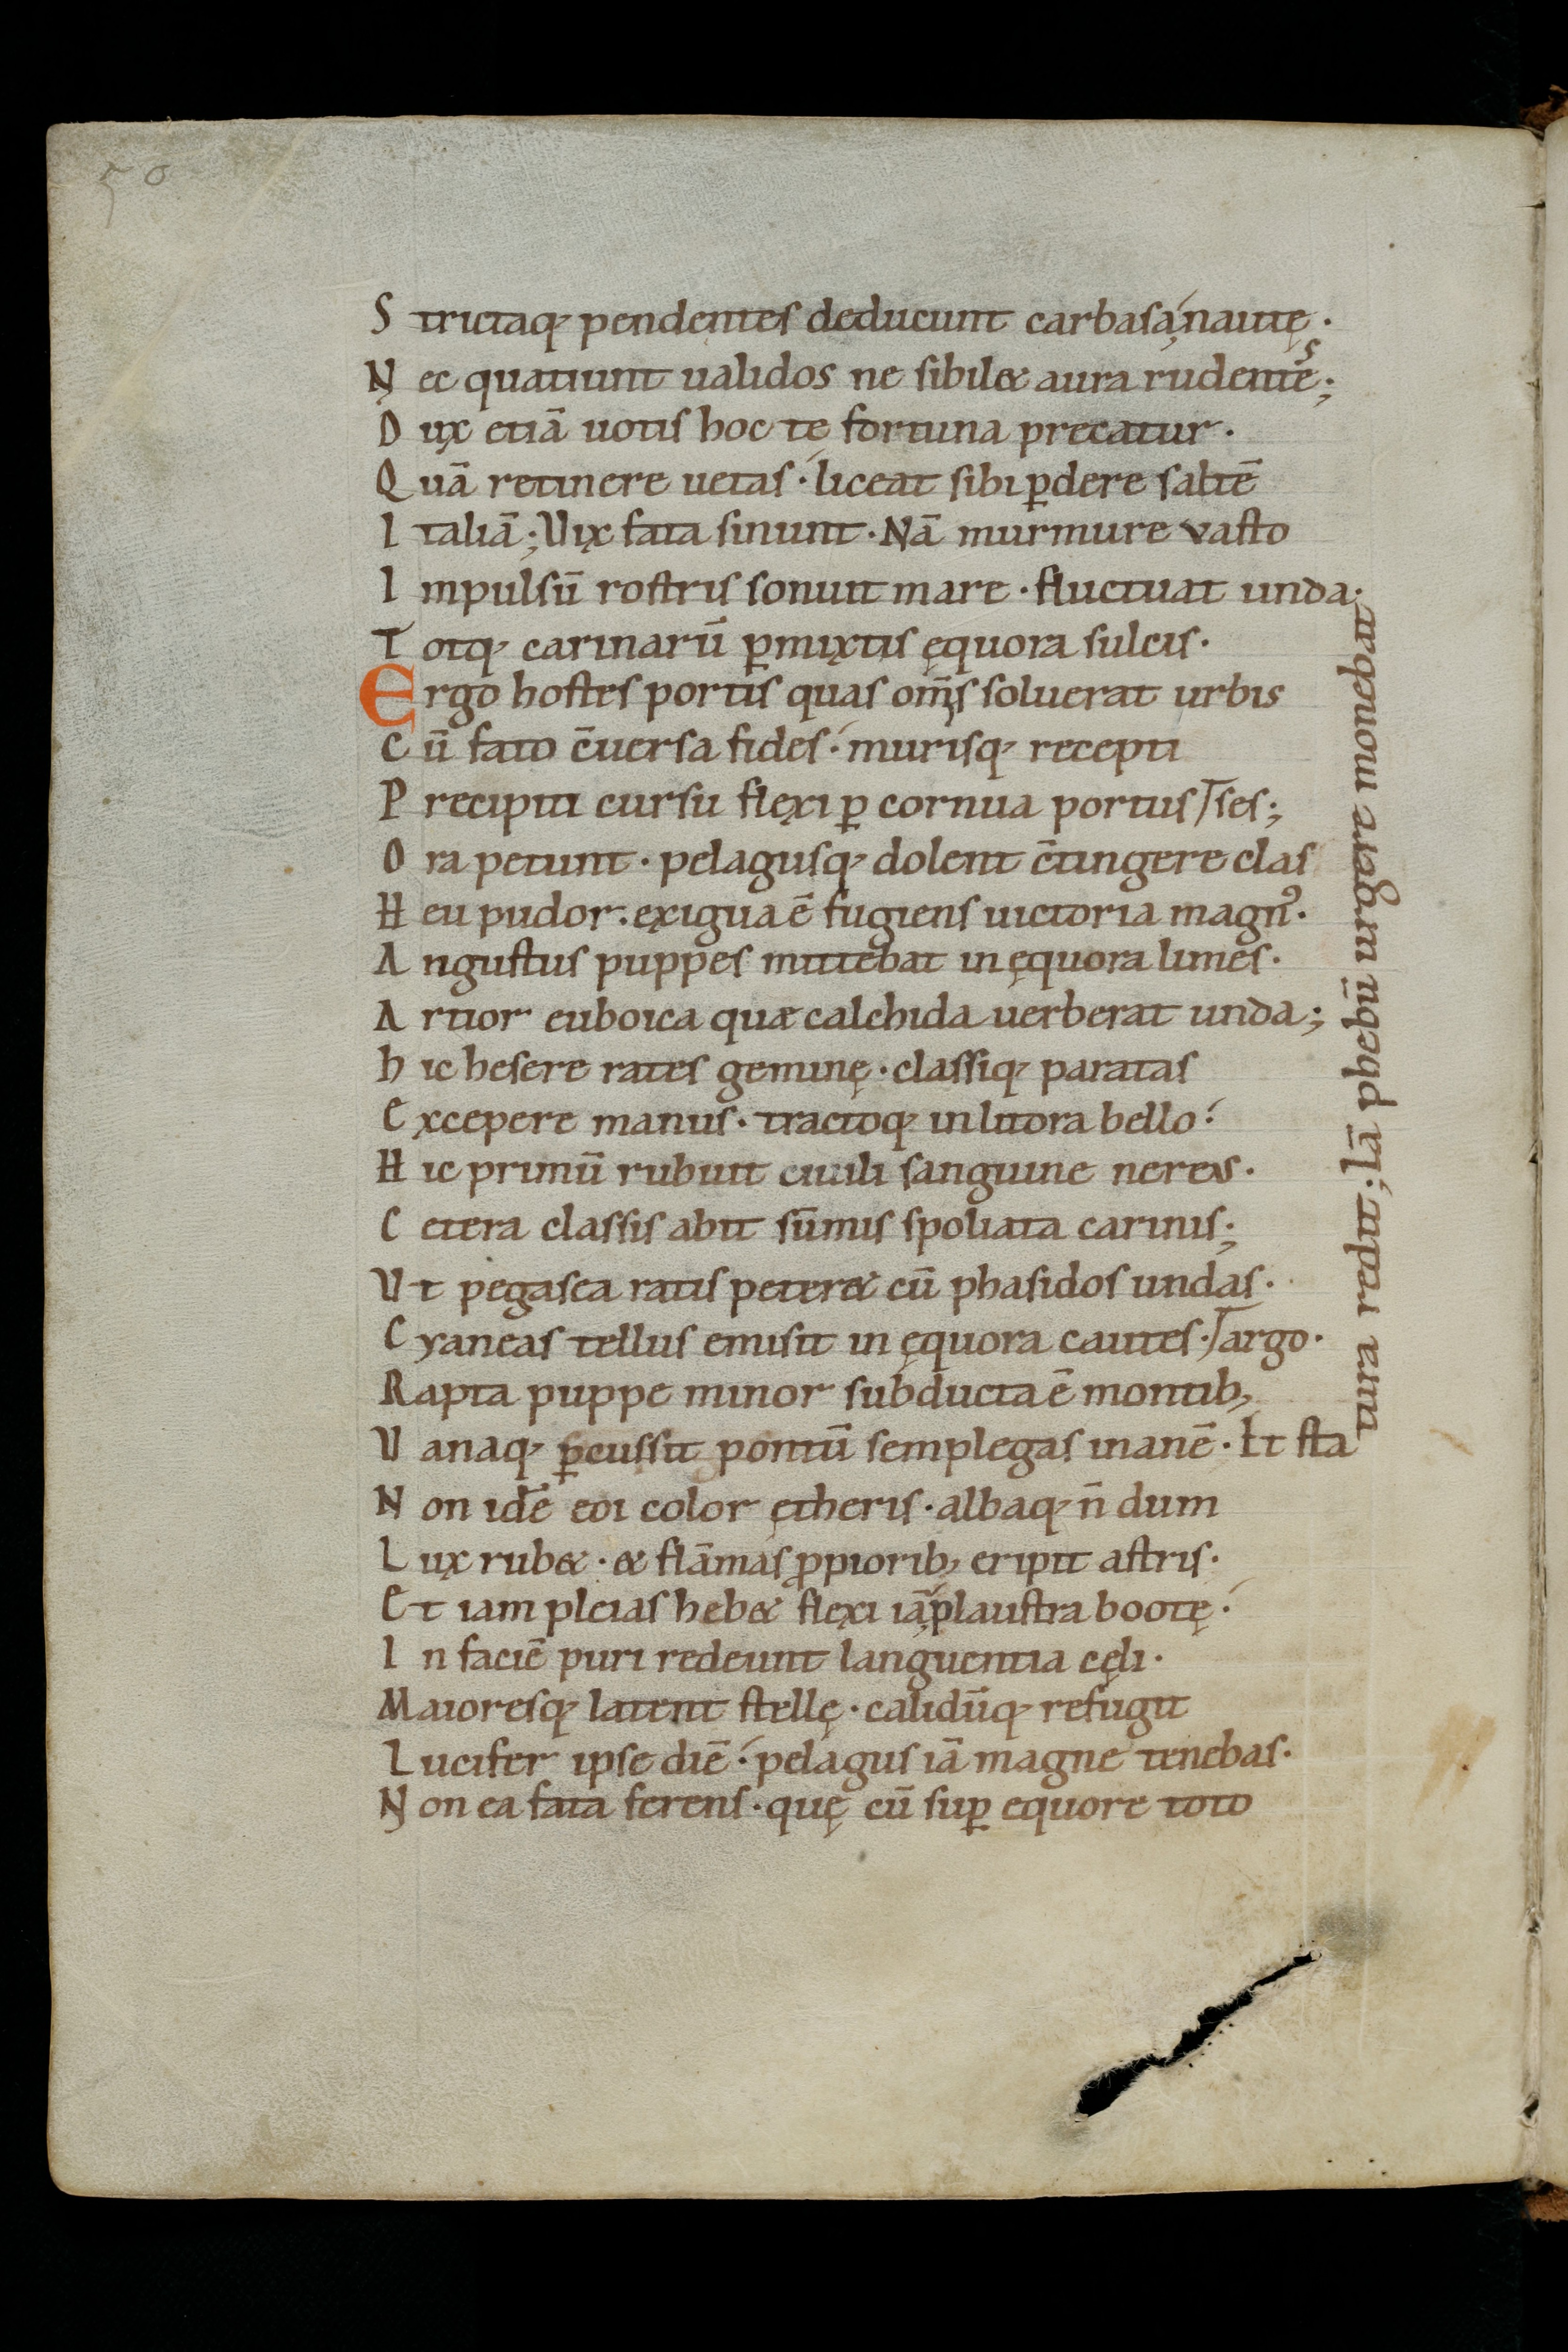 50
S trictaq; pendentes deducunt carbasa, nautę.
N ec quatiunt ualidos ne sibil& aura rudentes;
D ux etiā uotis hoc te fortuna precatur.
Q uā retinere uetas. liceat sibi ꝑdere saltē
I taliā; Vix fata sinunt. Nā murmure vasto
I mpulsū rostris sonuit mare. fluctuat unda.
T otq; carinarū ꝑmixtis ęquora sulcis.
E rgo hostes portis quas om̄s soluerat urbis
C ū fato c̄uersa fides. murisq; recepti
P recipiti cursu flexi ꝑ cornua portus
O ra petunt. pelagusq; dolent c̄tingere clas ses;
H eu pudor. exigua ē fugiens uictoria magnꝰ.
A ngustus puppes mittebat in ęquora limes.
A rtior euboica quæ calchida uerberat unda;
h ic hesere rates geminę. classiq; paratas
E xcepere manus. tractoq; in litora bello.
H ic primū rubuit ciuili sanguine nereis.
C etera classis abit sūmis spoliata carinis;
V t pegasea ratis peter& cū phasidos undas.
C yaneas tellus emisit in ęquora cautes.
R apta puppe minor subducta ē montib; argo.
V anaq; ꝑcussit pontū semplegas inanē. Et sta
tura redit; Iā phebū urgere monebat
N on idē eoi color ętheris. albaq; n̄ dum
L ux rub&. & flāmas ꝓpiorib; eripit astris.
E t iam pleias heb& flexi iā plaustra bootę.
I n faciē puri redeunt languentia cęli.
M aioresq; latent stellę. calidūq; refugit
L ucifer ipse diē. pelagus iā magne tenebas.
N on ea fata ferens. quę cū suꝑ equore toto